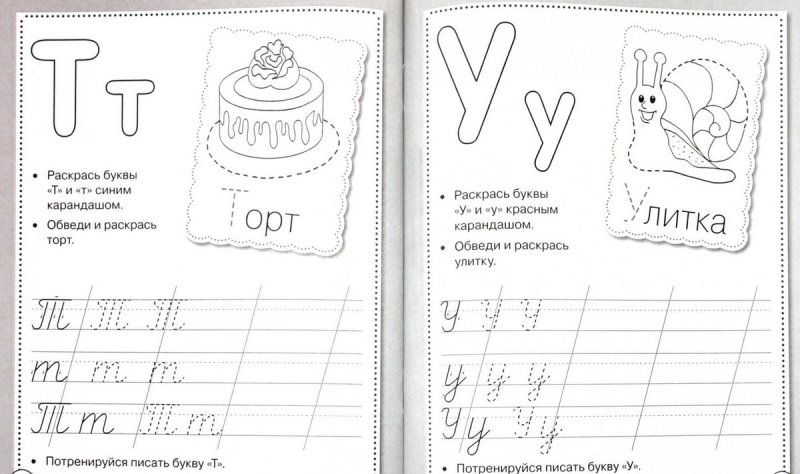 Т т
• Раскрась буквы
«Т» и «т» синим
карандашом.
• Обведи и раскрась
торт.
Торт
Т Т Т
т т т
Т т Т т
• Потренируйся писать букву «Т».
У у
• Раскрась буквы
«У» и «у» красным
карандашом.
• Обведи и раскрась
улитку.
Улитка
У У У
у у у
У у У у
• Потренируйся писать букву «У».